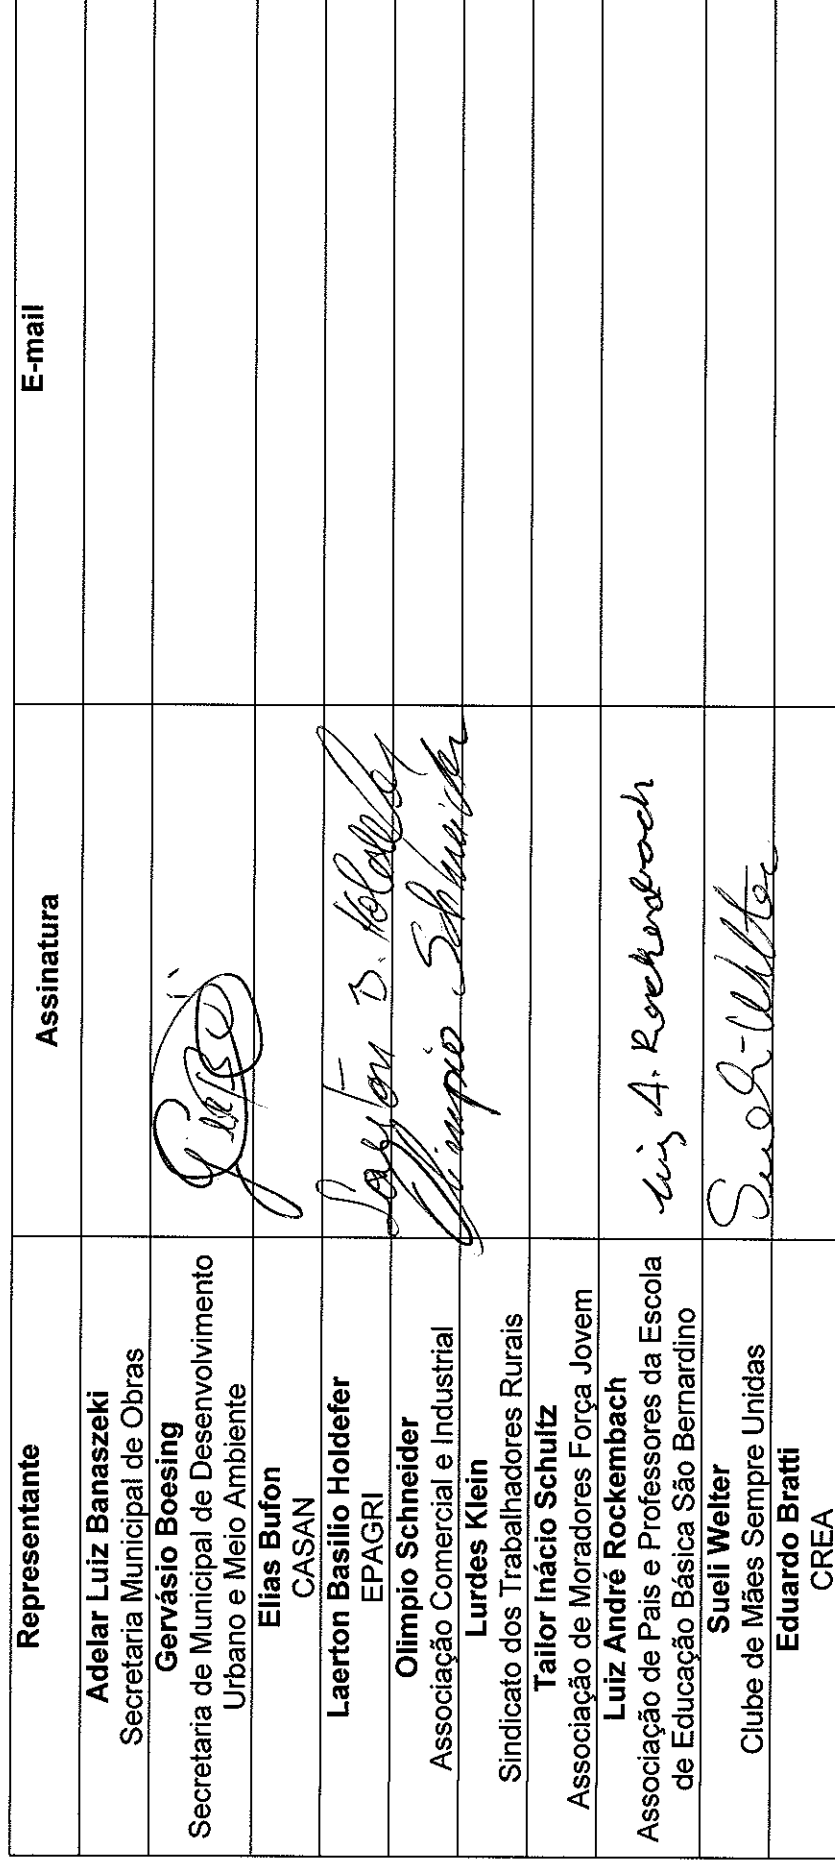 Representante Assinatura E-mail
Adelar Luiz Banaszeki
Secretaria Municipal de Obras
Gervásio Boesing
Secretaria de Municipal de Desenvolvimento
Urbano e Meio Ambiente
Elias Bufon
CASAN
Laerton Basilio Holdefer
EPAGRI
Laerton B. Holdefer
Olimpio Schneider
Associação Comercial e Industrial
Olimpio Schneider
Lurdes Klein
Sindicato dos Trabalhadores Rurais
Tailor Inácio Schultz
Associação de Moradores Força Jovem
Luiz André Rockembach
Associação de Pais e Professores da Escola
de Educação Básica São Bernardino
Luiz A. Rockembach
Sueli Welter
Clube de Mães Sempre Unidas
Sueli Welter
Eduardo Bratti
CREA